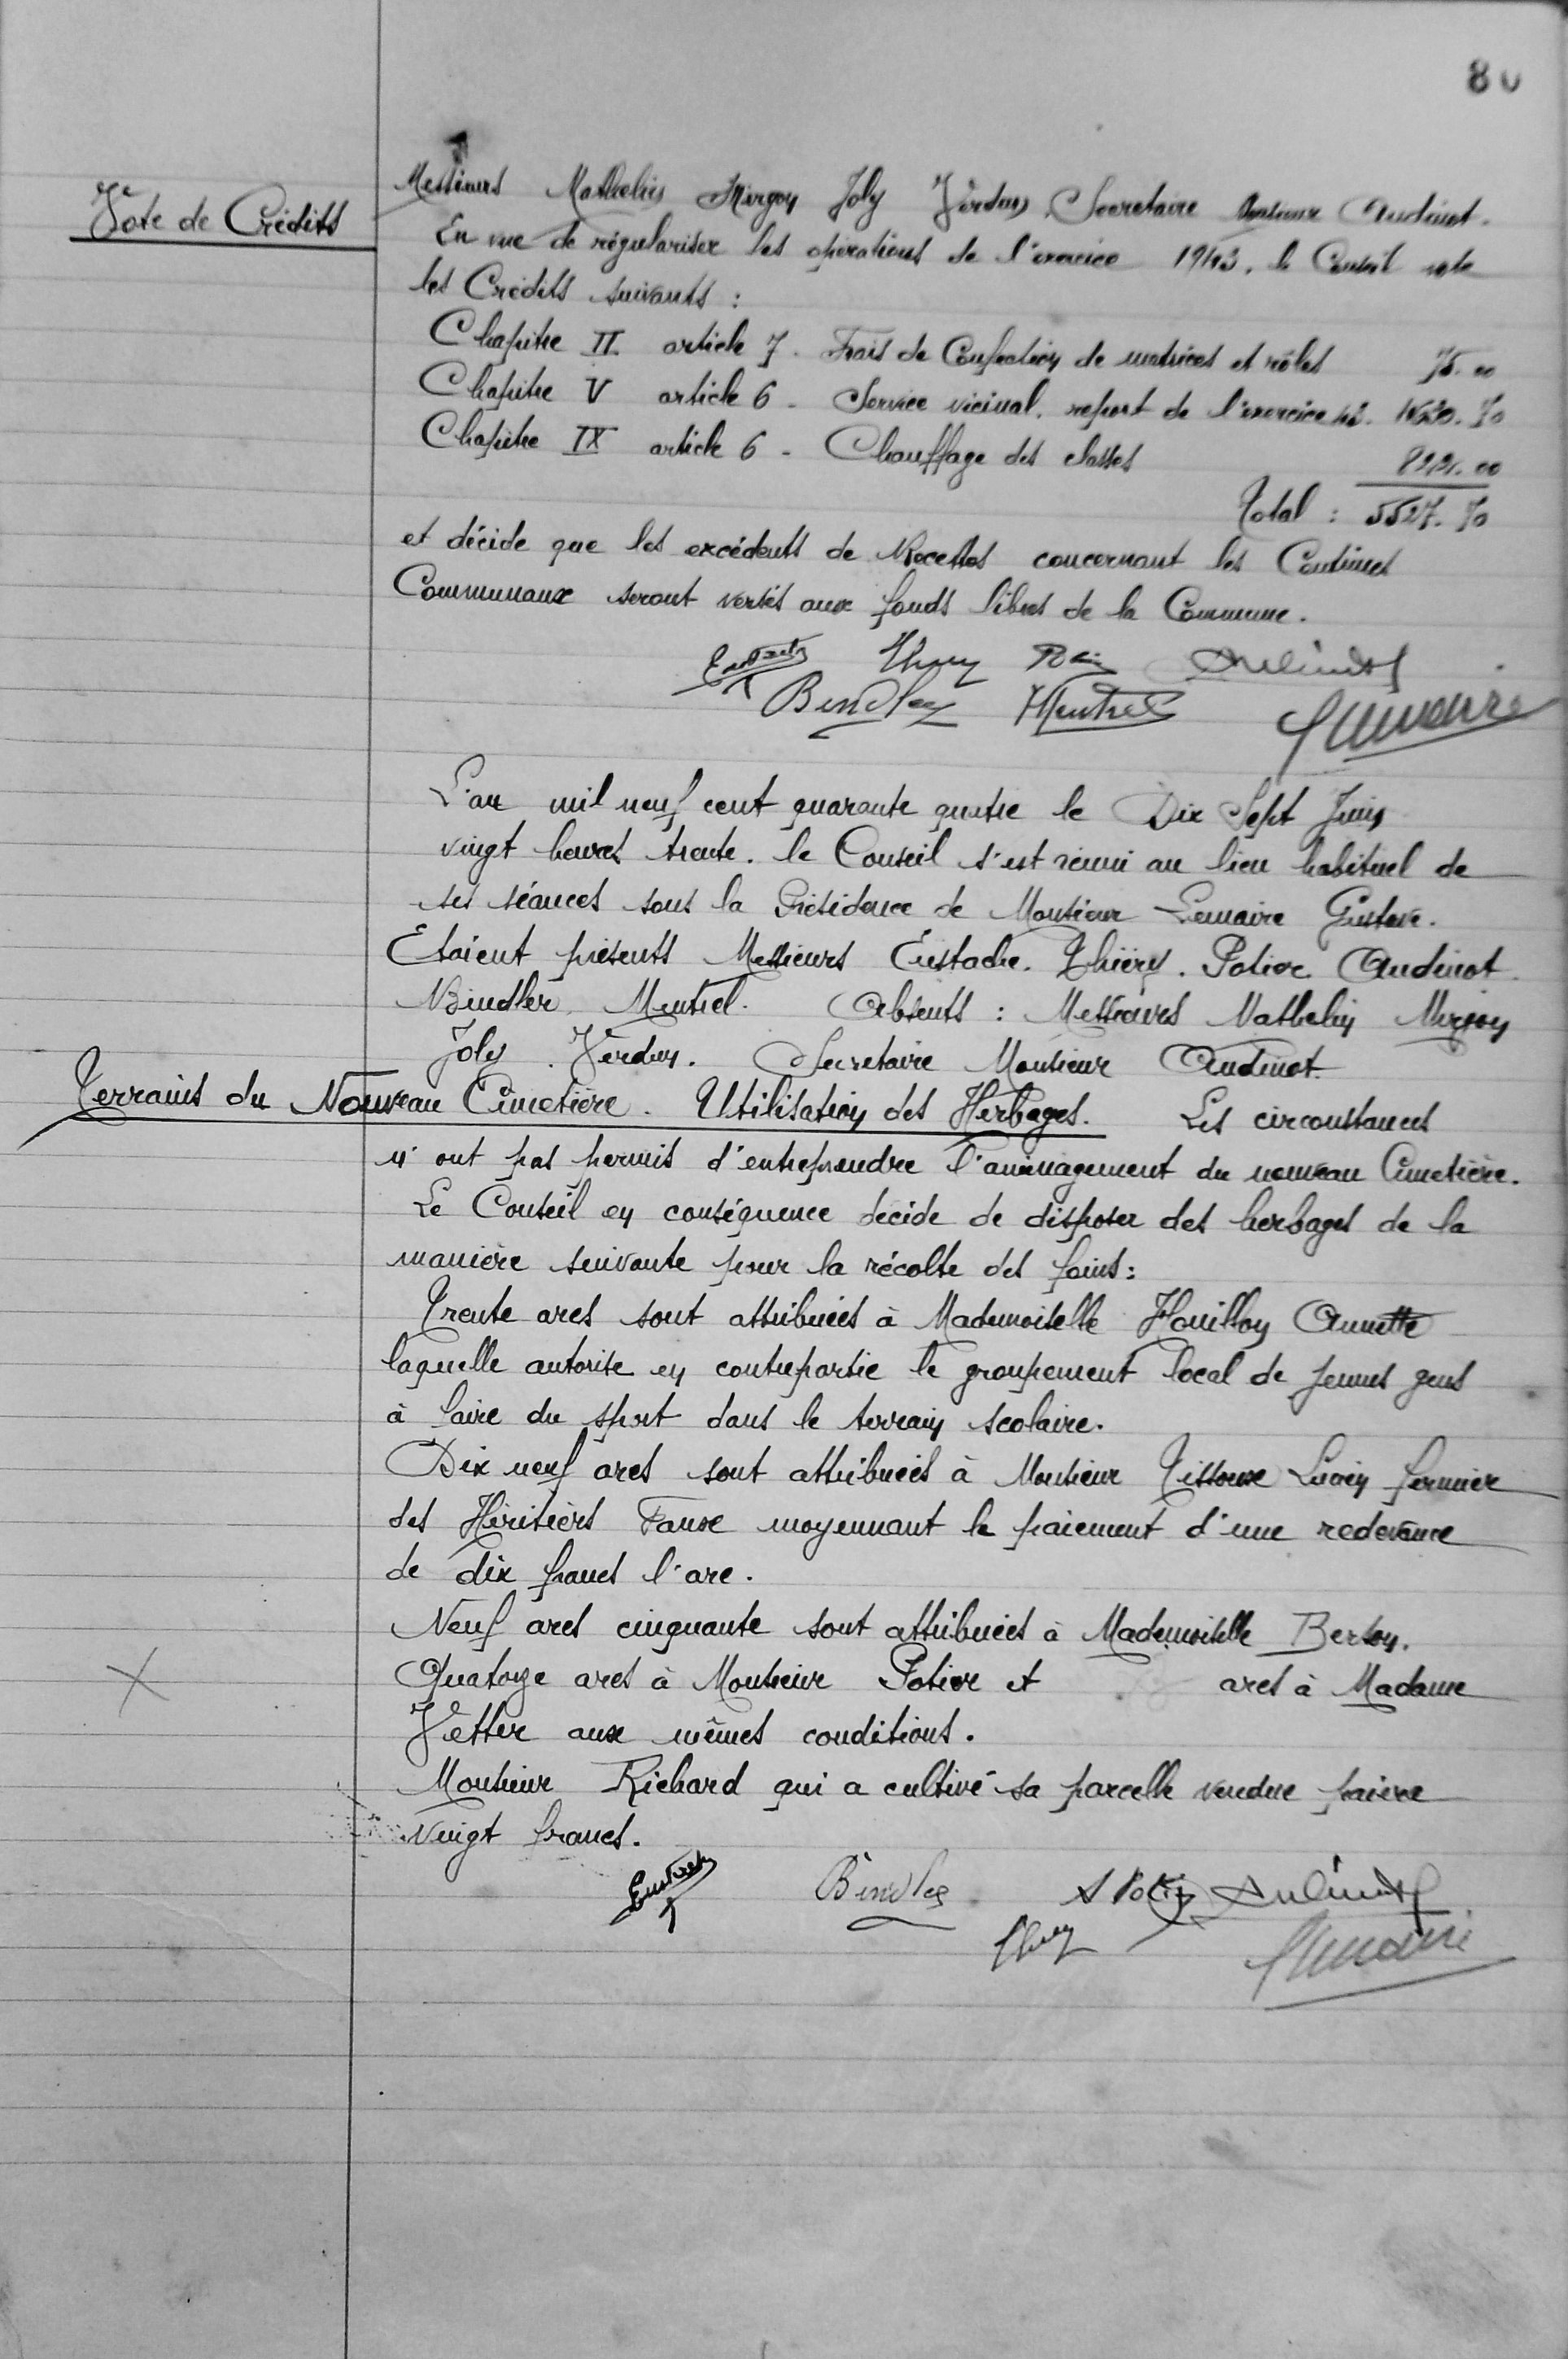 80
Messieurs Mathelin Mirgon Joly Verdun Secretaire Monsieur Audinot.
Vote de Crédits
En vue de régulariser les opérations de l'exercice 1943, le Conseil vote
les Crédits suivants :
Chapitre II article 7. Frais de Confection de matrices et rôles 75.00
Chapitre V article 6 - Service vicinal. report de l'exercice 42.
Chapitre IX article 6 - Chauffage des classes
Total : 5527.70
et décide que les excédents de Recettes concernant les Centimes
Communaux seront versés aux fonds libres de la Commune.
Eustache Thiery Audinot
Bindler Mentrel Lemaire
L'an mil neuf cent quarante quatre le Dix Sept Juin
vingt heures trente. le Conseil s'est réuni au lieu habituel de
ses séances sous la Présidence de Monsieur Lemaire Gustave.
Etaient présents Messieurs Eustache. Thiery. Potier Audinot
Bindler. Mentrel. Absents : Messieurs Mathelin Mirgon
Joly. Verdun. Secretaire Monsieur Audinot.
Terrains du Nouveau Cimetière. Utilisation des Herbages. Les circonstances
n'ont pas permis d'entreprendre l'aménagement du nouveau Cimetière.
Le Conseil en conséquence décide de disposer des herbages de la
manière suivante pour la récolte des foins :
Trente ares sont attribués à Mademoiselle Houillon Annette
laquelle autorise en contrepartie le groupement local de jeunes gens
à faire du sport dans le terrain scolaire.
Dix neuf ares sont attribués à Monsieur Tissoux Lucien fermier
des Héritiers Faux moyennant le paiement d'une redevance
de dix francs l'are.
Neuf ares cinquante sont attribués à Mademoiselle Berson.
Quatorze ares à Monsieur Potier et ares à Madame
Vetter aux mêmes conditions.
Monsieur Richard qui a cultivé sa parcelle vendue paiera
Vingt francs.
Eustache Bindler Potier Audinot
Thiery Lemaire